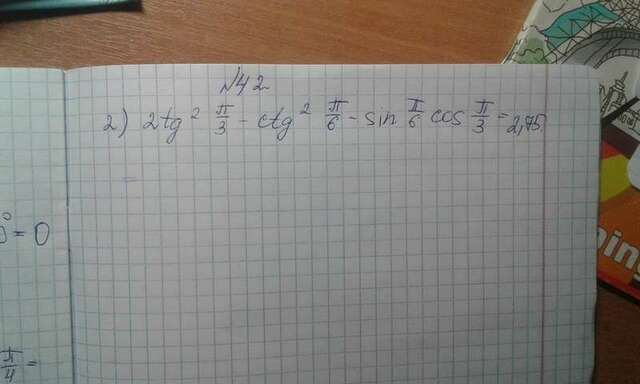 №42
2) 2tg² π/3 - ctg² π/6 - sin π/6 cos π/3 = 2,75
= 0
π/4 =